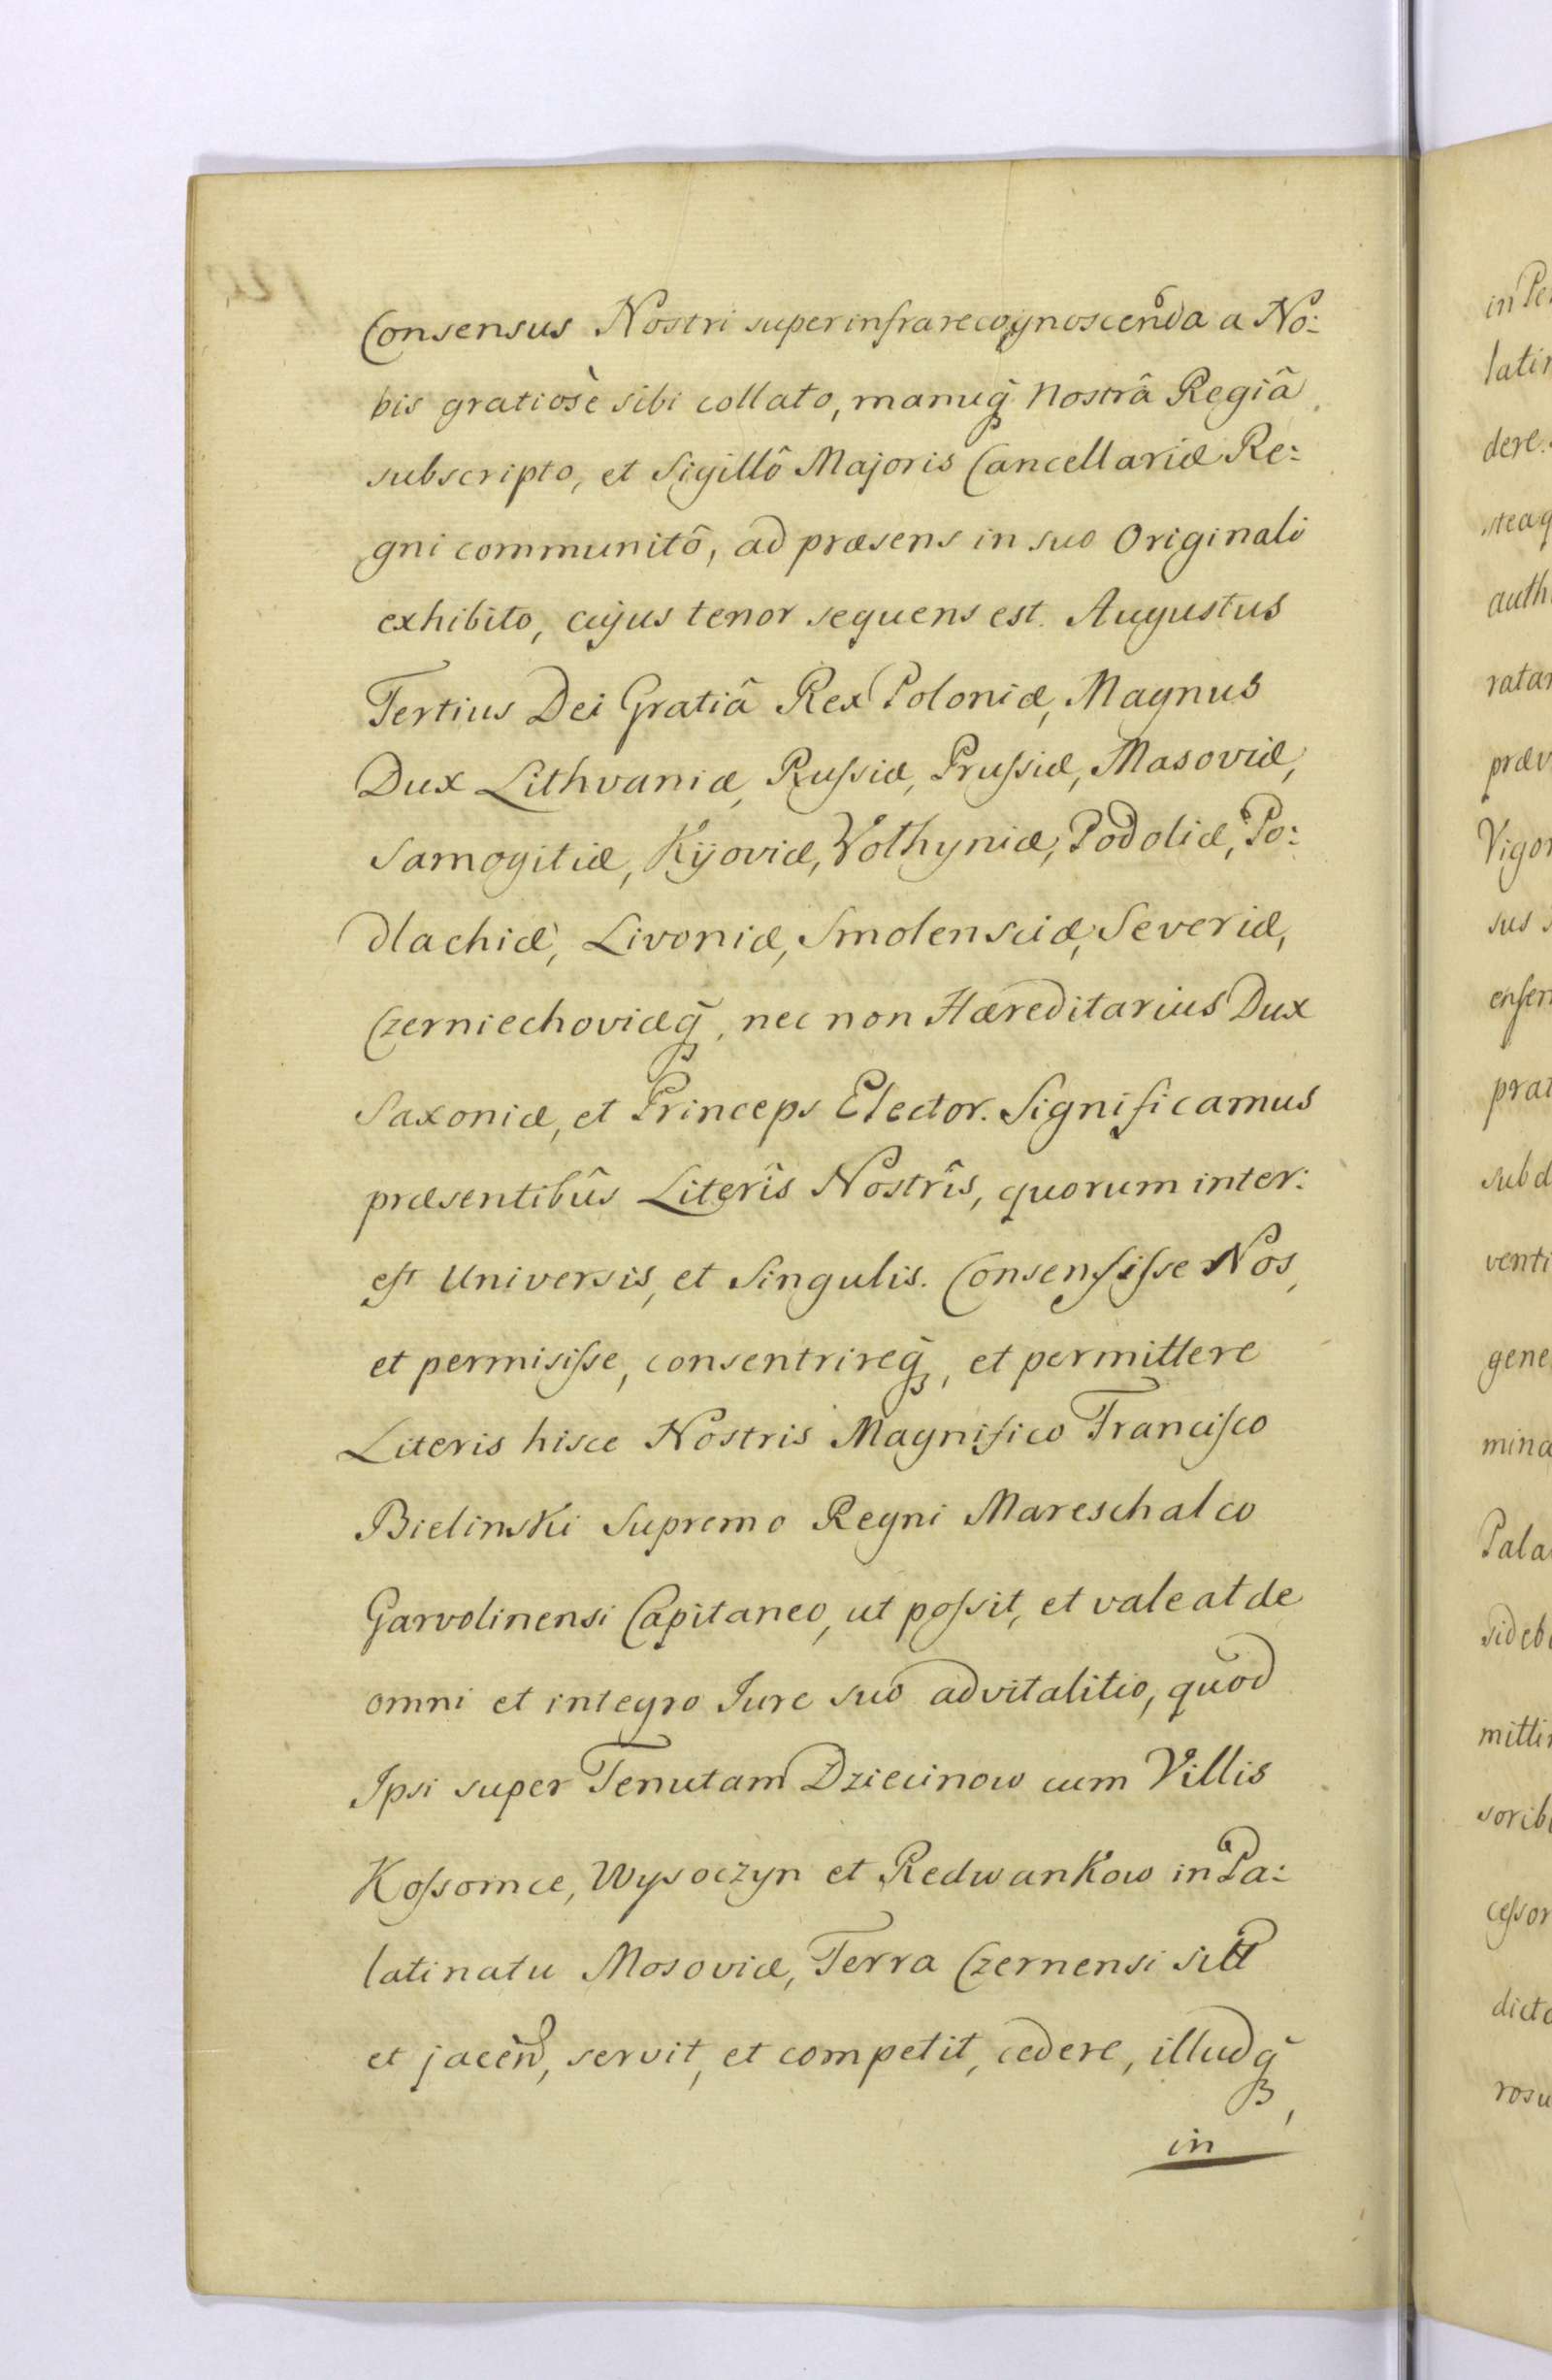 Consensus Nostri super infra recognoscenda a No:
bis gratiosè sibi collato, manuq̃ Nostrâ Regiâ
subscripto, et Sigillô Majoris Cancellariæ Re:
gni communitô, ad præsens in suo Originali
exhibito, cujus tenor sequens est. Augustus
Tertius Dei Gratiâ Rex Poloniæ, Magnus
Dux Lithvaniæ, Rußiæ, Prußiæ, Masoviæ,
Samogitiæ, Kijoviæ, Volhyniæ, Podoliæ, Po:
dlachiæ, Livoniæ, Smolensciæ, Severiæ,
Czerniechoviæq̃, nec non Hæreditarius Dux
Saxoniæ, et Princeps Elector. Significamus
præsentibûs Literîs Nostrîs, quorum inter:
est Universis, et Singulis. Consensiſse Nos,
et permisiſse, consentrireq̃, et permittere
Literis hisce Nostris Magnifico Franciſco
Bielinski Supremo Regni Mareschalco
Garvolinensi Capitaneo, ut poſsit, et valeat de
omni et integro Jure suo advitalitio, quod
Ipsi super Tenutam Dziecinow cum Villis
Koſsomce, Wysoczyn et Redwankow in Pa:
latinatu Mosoviæ, Terra Czernensi sitt
et jaceñ, servit, et competit, cedere, illudq̃,
in
in Pe
latin
dere.
steaq
auth
ratar
præv
Vigor
sus
enſen
prat
subd
venti
gene
mina
Pala
sideb
mitti
sorib
ceſsor
dicto
rosu